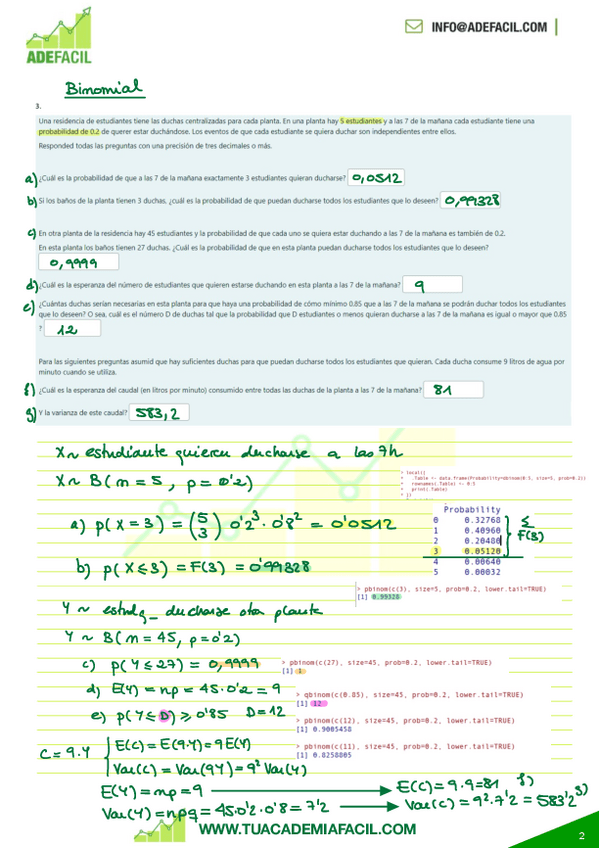 ADEFACIL
INFO@ADEFACIL.COM
Binomial
3.
Una residencia de estudiantes tiene las duchas centralizadas para cada planta. En una planta hay 5 estudiantes y a las 7 de la mañana cada estudiante tiene una
probabilidad de 0.2 de querer estar duchándose. Los eventos de que cada estudiante se quiera duchar son independientes entre ellos.
Responded todas las preguntas con una precisión de tres decimales o más.
a) ¿Cuál es la probabilidad de que a las 7 de la mañana exactamente 3 estudiantes quieran ducharse? 0,0512
b) Si los baños de la planta tienen 3 duchas, ¿cuál es la probabilidad de que puedan ducharse todos los estudiantes que lo deseen? 0,99328
c) En otra planta de la residencia hay 45 estudiantes y la probabilidad de que cada uno se quiera estar duchando a las 7 de la mañana es también de 0.2.
En esta planta los baños tienen 27 duchas. ¿Cuál es la probabilidad de que en esta planta puedan ducharse todos los estudiantes que lo deseen?
0,9999
d) ¿Cuál es la esperanza del número de estudiantes que quieren estarse duchando en esta planta a las 7 de la mañana? 9
e) ¿Cuántas duchas serían necesarias en esta planta para que haya una probabilidad de cómo mínimo 0.85 que a las 7 de la mañana se podrán duchar todos los estudiantes
que lo deseen? O sea, cuál es el número D de duchas tal que la probabilidad que D estudiantes o menos quieran ducharse a las 7 de la mañana es igual o mayor que 0.85
? 12
Para las siguientes preguntas asumid que hay suficientes duchas para que puedan ducharse todos los estudiantes que quieran. Cada ducha consume 9 litros de agua por
minuto cuando se utiliza.
f) ¿Cuál es la esperanza del caudal (en litros por minuto) consumido entre todas las duchas de la planta a las 7 de la mañana? 81
g) Y la varianza de este caudal? 583,2
X ~ estudiante quieren ducharse a las 7h
X ~ B(n = 5, p = 0'2)
> local({
+ .Table <- data.frame(Probability=dbinom(0:5, size=5, prob=0.2))
+ rownames(.Table) <- 0:5
+ print(.Table)
+ })
a) p(X = 3) = (5 3) 0'2³ · 0'8² = 0'0512
Probability
0 0.32768
1 0.40960
2 0.20480
3 0.05120
4 0.00640
5 0.00032
Σ
F(3)
b) p(X ≤ 3) = F(3) = 0'99328
> pbinom(c(3), size=5, prob=0.2, lower.tail=TRUE)
[1] 0.99328
Y ~ estud ducharse otra planta
Y ~ B(n = 45, p = 0'2)
c) p(Y ≤ 27) = 0,9999
> pbinom(c(27), size=45, prob=0.2, lower.tail=TRUE)
[1] 1
d) E(Y) = np = 45 · 0'2 = 9
e) p(Y ≤ D) ≥ 0'85 D = 12
> qbinom(c(0.85), size=45, prob=0.2, lower.tail=TRUE)
[1] 12
> pbinom(c(12), size=45, prob=0.2, lower.tail=TRUE)
[1] 0.9005458
> pbinom(c(11), size=45, prob=0.2, lower.tail=TRUE)
[1] 0.8258805
C = 9·Y
E(C) = E(9·Y) = 9E(Y)
Var(C) = Var(9Y) = 9² Var(Y)
E(Y) = np = 9 → E(C) = 9·9 = 81 f)
Var(Y) = npq = 45·0'2·0'8 = 7'2 → Var(C) = 9²·7'2 = 583'2 g)
WWW.TUACADEMIAFACIL.COM
2